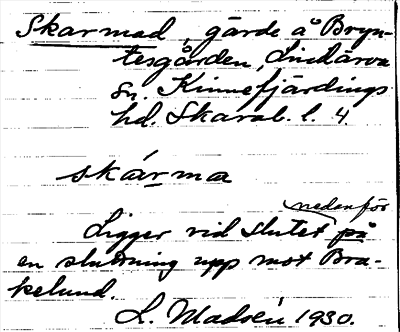 Skarmad, gärde å Bryn-
tesgården, Lindärva
sn. Kinnefjärdings
hd. Skarab. l. 4
skárma
nedenför
Ligger vid slutet på
en sluttning upp mot Bra-
kelund.
L. Madsén 1930.